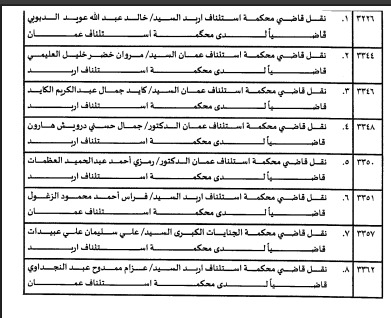 ٣٢٢٦ ١. نقل قاضي محكمة استئناف اربد السيد/ خالد عبد الله عويد الدبوبي
قاضياً لدى محكمة استئناف عمان
٣٣٤٤ ٢. نقل قاضي محكمة استئناف عمان السيد/ مروان خضر خليل العليمي
قاضياً لدى محكمة استئناف اربد
٣٣٤٦ ٣. نقل قاضي محكمة استئناف عمان السيد/ كايد جمال عبدالكريم الكايد
قاضياً لدى محكمة استئناف اربد
٣٣٤٨ ٤. نقل قاضي محكمة استئناف عمان الدكتور/ جمال حسني درويش هارون
قاضياً لدى محكمة استئناف اربد
٣٣٥٠ ٥. نقل قاضي محكمة استئناف عمان الدكتور/ رمزي أحمد عبدالحميد العظمات
قاضياً لدى محكمة استئناف اربد
٣٣٥١ ٦. نقل قاضي محكمة استئناف اربد السيد/ فراس أحمد محمود الزغول
قاضياً لدى محكمة استئناف عمان
٣٣٥٧ ٧. نقل قاضي محكمة الجنايات الكبرى السيد/ علي سليمان علي عبيدات
قاضياً لدى محكمة استئناف اربد
٣٣٦٢ ٨. نقل قاضي محكمة استئناف اربد السيد/ عزام ممدوح عبد النجداوي
قاضياً لدى محكمة استئناف عمان